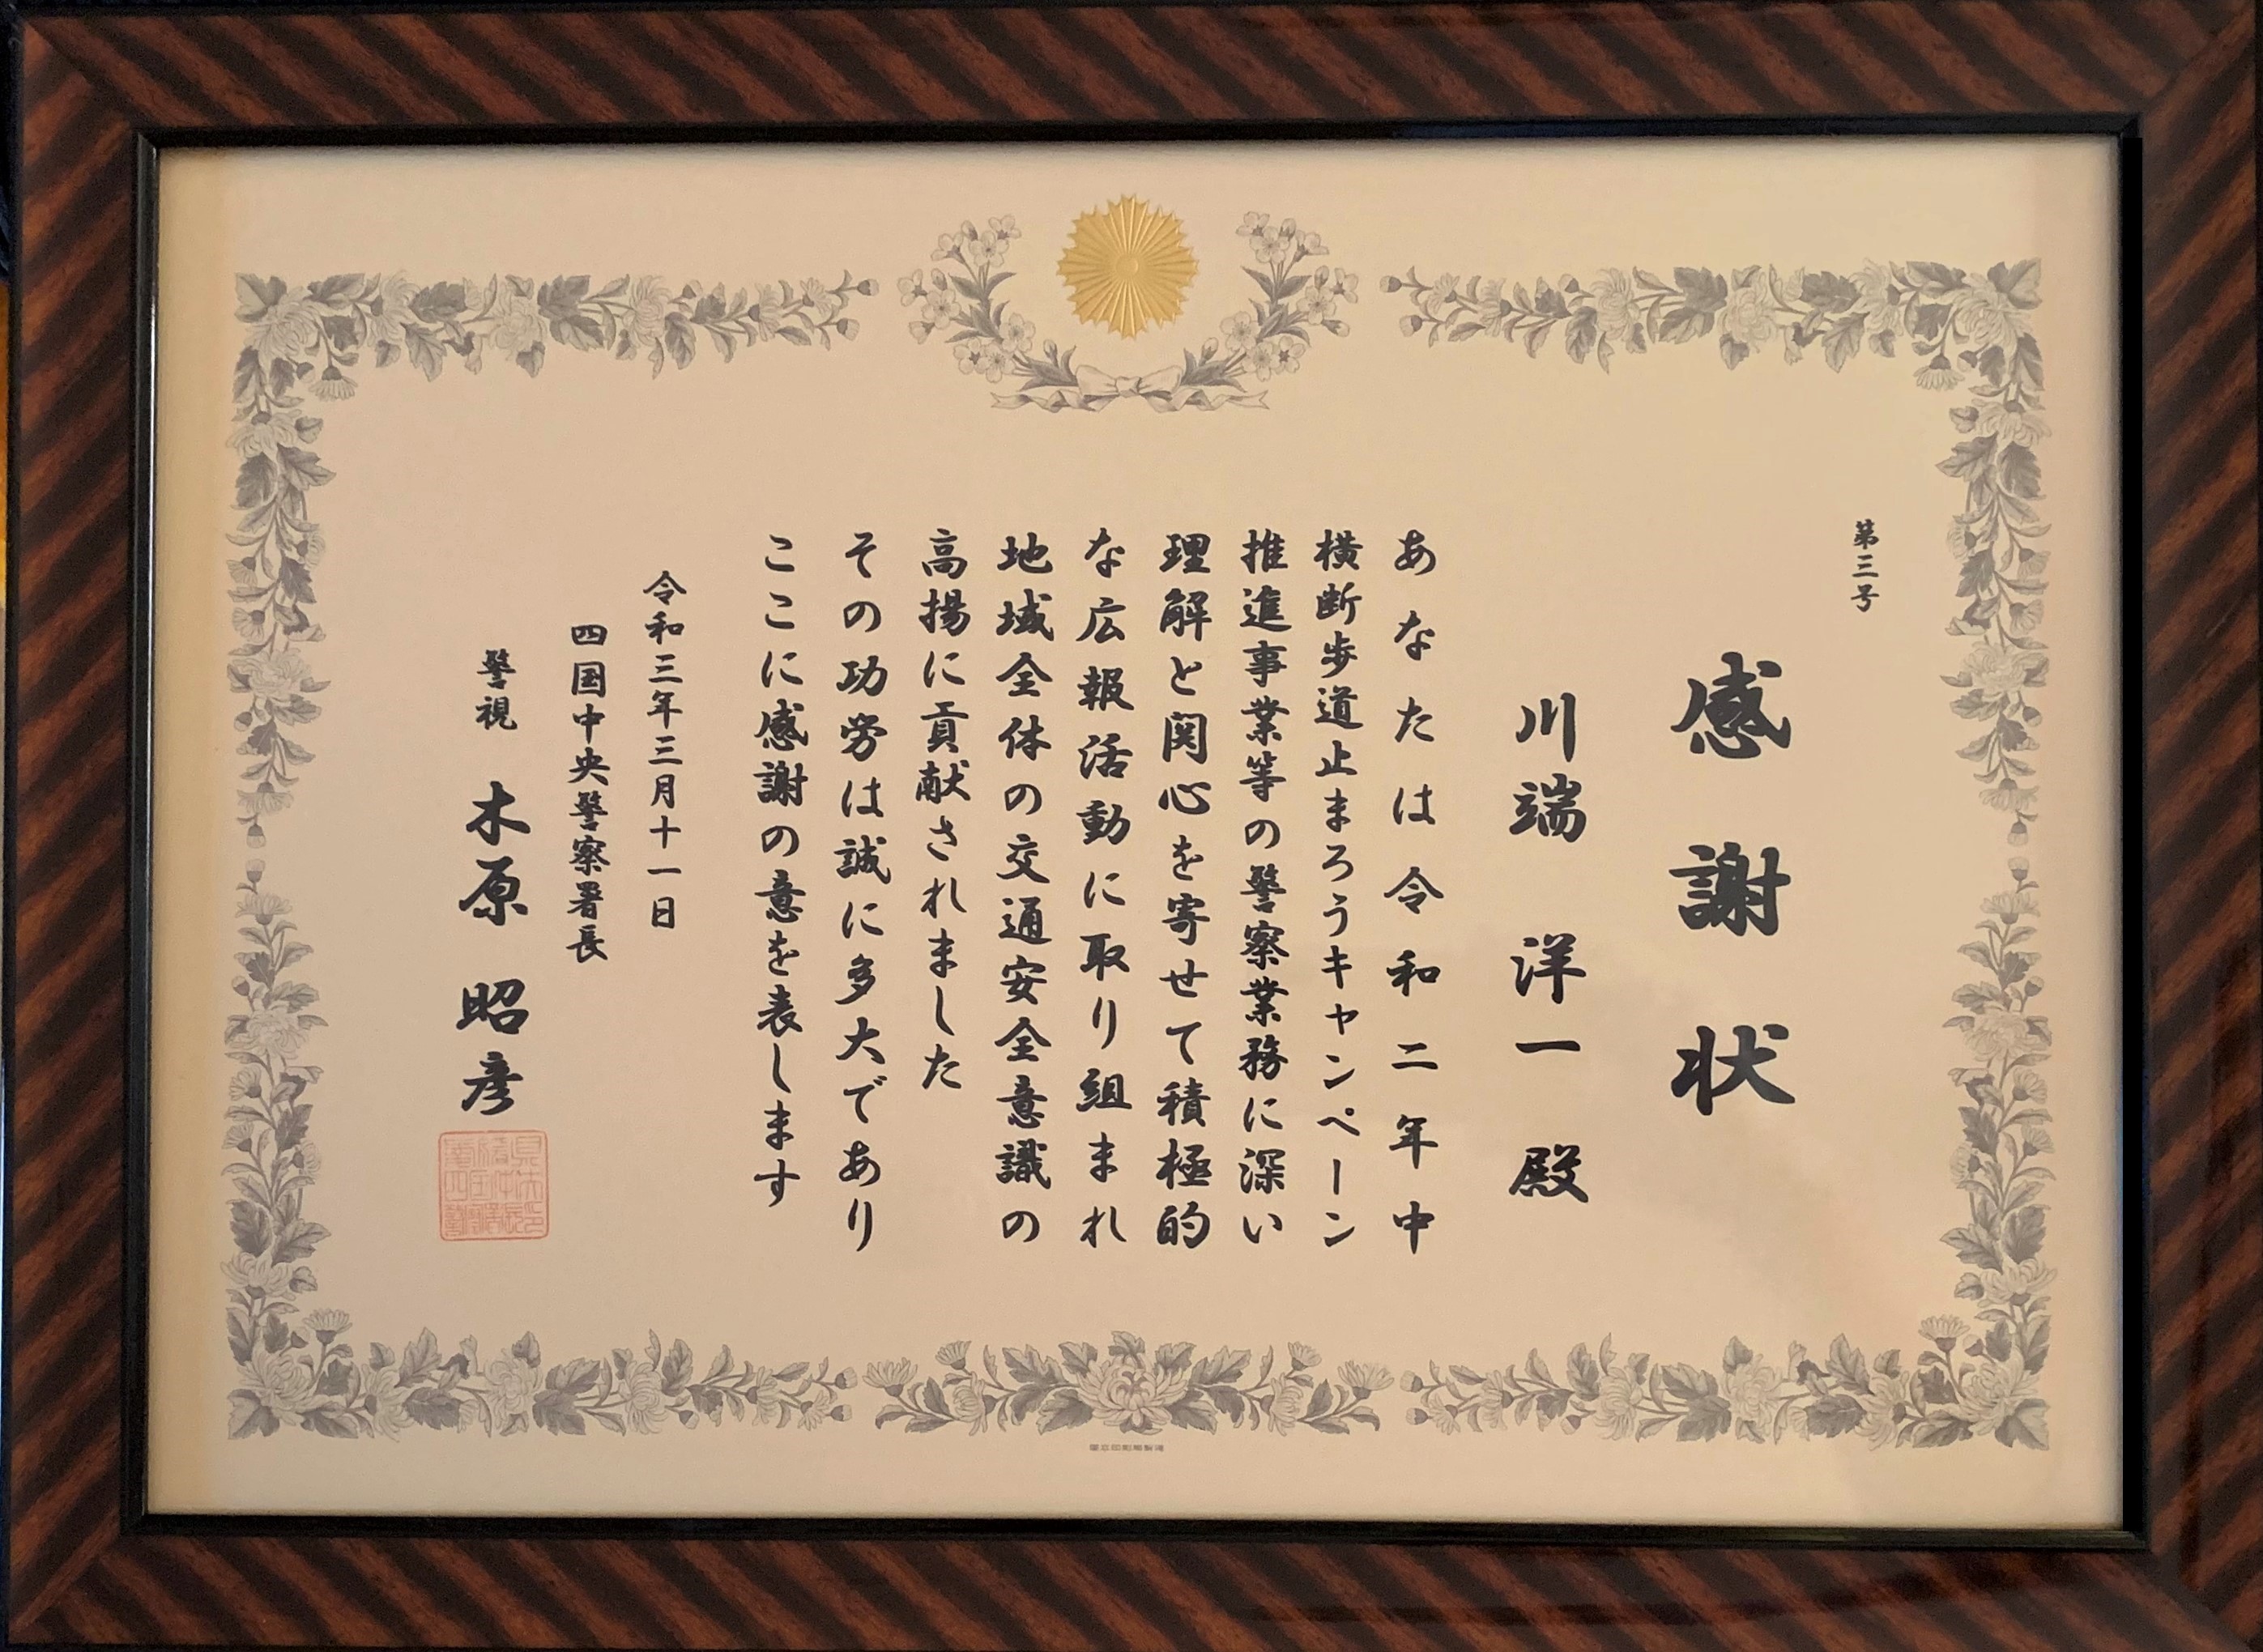 第三号
感謝状
川端 洋一 殿
あなたは令和二年中
横断歩道止まろうキャンペーン
推進事業等の警察業務に深い
理解と関心を寄せて積極的
な広報活動に取り組まれ
地域全体の交通安全意識の
高揚に貢献されました
その功労は誠に多大であり
ここに感謝の意を表します
令和三年三月十一日
四国中央警察署長
警視 木原 昭彦